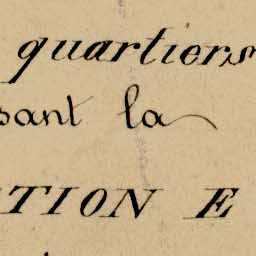 quartiers
sant la
TION E